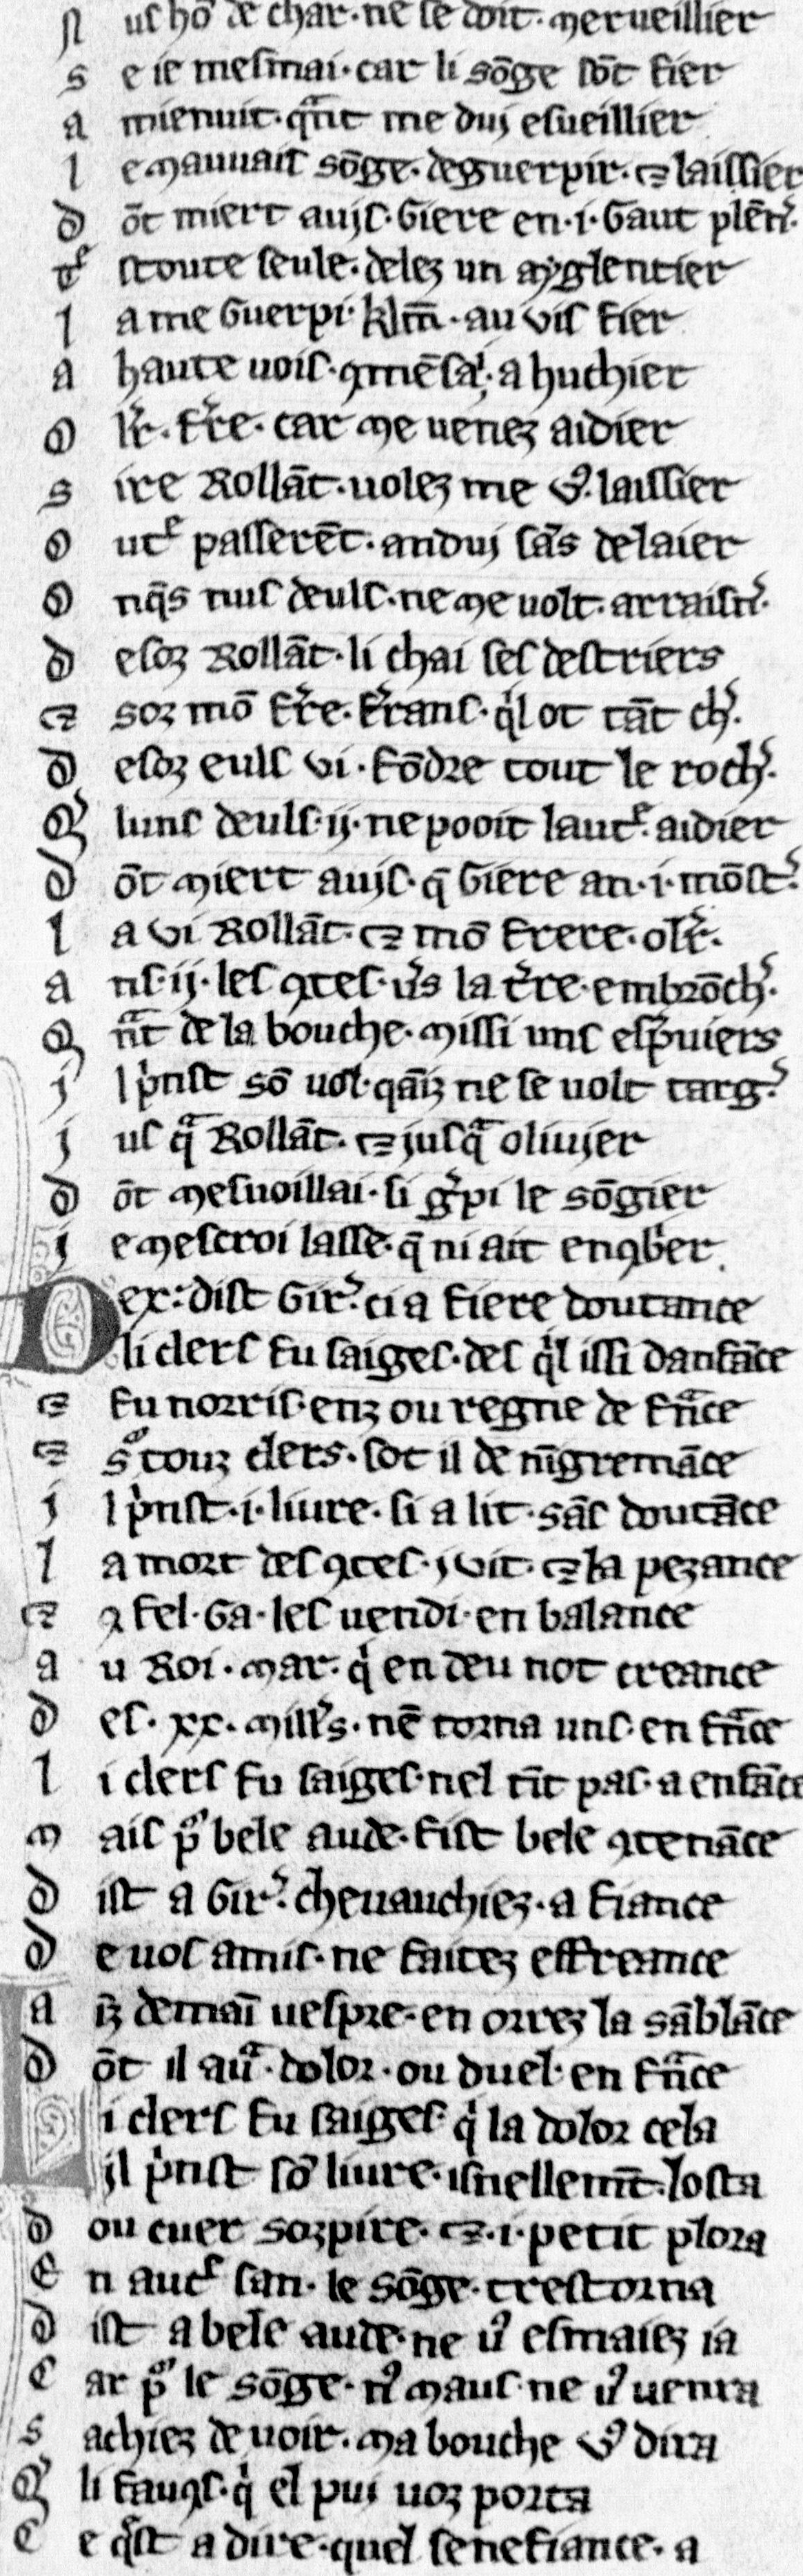 N us hō de char. ne se doit. merueillier
S e ie mesmai. car li sōge sōt fier
A mienuit. q̄nt me duj esueillier
L e mauuais sōge. deguerpir. ⁊ laissier
D ōt miert aujs. Giere en .i. Gaut plēn̾.
T͛ stoute seule. delez un ayglentier
L a me Guerpi. klm̄. au vis fier
A haute uois. ꝯmēsa̍. a huchier
O lr̄. fr̄e. car me venez aidier
S ire Rollāt. uolez me v̾. laissier
O ut͛ passerēt. anduj sās delaier
O nq̄s nus deuls. ne me uolt. arraisn̾.
D esoz Rollāt. li chai ses destriers
⁊ soz mō fr̄e. frans. q̍l ot tāt ch̾.
D esoz euls vi. fōdre tout le roch̾.
Q̾ luns deuls .ij. ne pooit laut͛. aidier
D ōt miert aujs. q̄ Giere an .i. mōst̾.
L a vi Rollāt. ⁊ mō frere. olr̄.
A ns .ij. les ꝯtes. u̾s la t̾re. embrōch̾.
Q n̄t de la bouche. missi uns esp̄uiers
J l p̍nst sō uol. qāz ne se uolt targ̾.
J us q̄ Rollāt. ⁊ jusq̄ olivjer
D ōt mesuoillai. si g̾pi le sōgier
J e mescroi lasse. q̄ ni ait enꝯb̾er.
Dex: dist Gir̾. ci a fiere doutance
li clers fu saiges. des q̍l issi danfāce
⁊ fu norris. enz ou regne de fn̄ce
⁊ s͛ touz clers. sot il de nīgremāce
J l p̍nst .i. liure. si a lit. sās doutāce
L a mort des ꝯtes. j vit. ⁊ la pezance
⁊ ꝯ fel. Ga. les uendi. en balance
A u Roi. mar. q̍ en deu not creance
D es .xx. mill̾s. nē torna uns. en fn̄ce
L i clers fu saiges. nel tīt pas. a enfāce
M ais p͛ bele aude. fist bele ꝯtenāce
D ist a Gir̾. cheuauchiez. a fiance
D e uos amis. ne faitez effreance
A īz demaī uespre. en orrez la sāblāce
D ōt il au̾. dolor. ou duel. en fn̄ce
Li clers fu saiges. q̍ la dolor cela
jl p̍nst sō liure. isnellem̄t. losta
D ou cuer sozpire. ⁊ .i. petit plora
E n aut͛ san. le sōge. trestorna
D ist a bele aude. ne v̾ esmaiez ia
C ar p͛ le sōge. n̾ maus. ne v̾ uenra
S achiez de uoir. ma bouche v̾ dira
Q̾ li fauꝯs. q̍ el pui uoz porta
C e q̄st a dire. quel senefiance. a